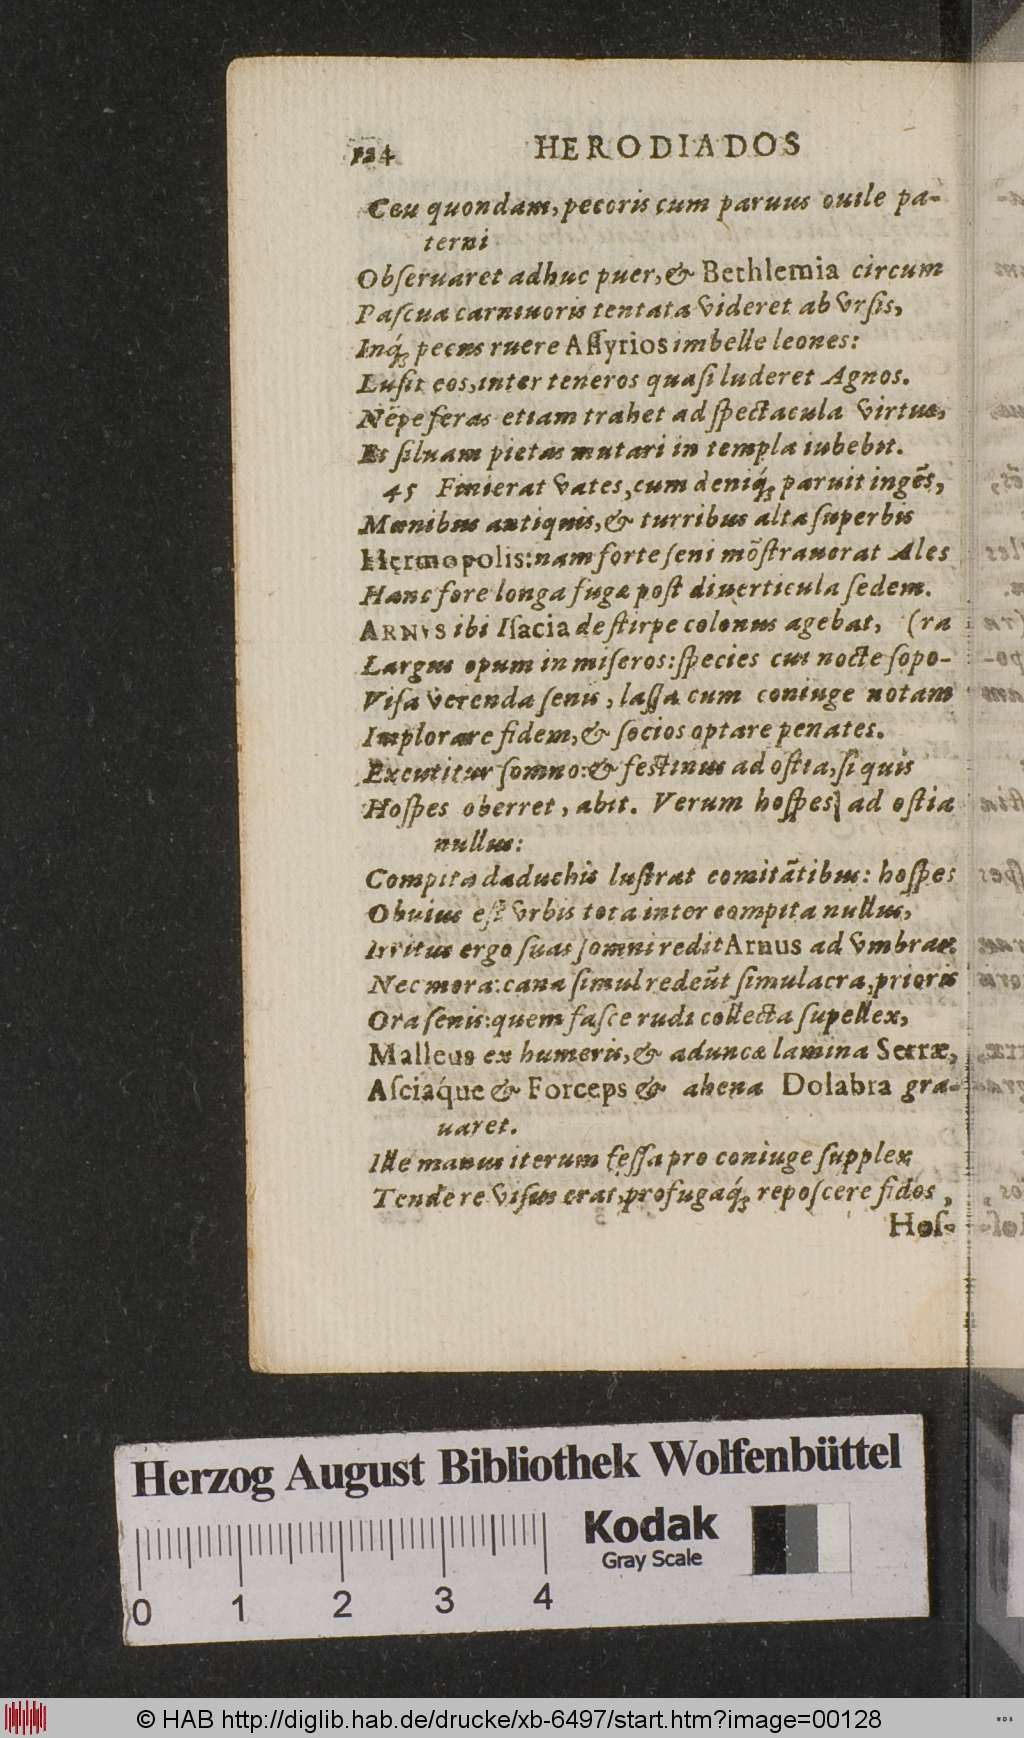 124 HERODIADOS
Ceu quondam, pecoris cum paruus ouile pa-
terni
Obſeruaret adhuc puer, & Bethlemia circum
Paſcua carniuoris tentata videret ab vrſis,
Inq́; pecus ruere Aſſyrios imbelle leones:
Luſit eos, inter teneros quaſi luderet Agnos.
Nẽpe feras etiam trahet ad ſpectacula virtus,
Et ſiluam pietas mutari in templa iubebit.
45 Finierat vates, cum deniq́; paruit ingẽs,
Mœnibus antiquis, & turribus alta ſuperbis
Hermopolis: nam forte ſeni mõſtrauerat Ales
Hanc fore longa fugæ poſt diuerticula ſedem.
ARNVS ibi Iſacia de ſtirpe colonus agebat, (ra
Largus opum in miſeros: ſpecies cui nocte ſopo-
Viſa verenda ſenis, laſſa cum coniuge notam
Implorare fidem, & ſocios optare penates.
Excutitur ſomno: & feſtinus ad oſtia, ſi quis
Hoſpes oberret, abit. Verum hoſpes ad oſtia
nullus:
Compita daduchis luſtrat comitãtibus: hoſpes
Obuius eſt vrbis tota inter compita nullus,
Irritus ergo ſuas ſomni redit Arnus ad vmbras.
Nec mora: cana ſimul redeũt ſimulacra, prioris
Ora ſenis: quem faſce rudi collecta ſupellex,
Malleus ex humeris, & aduncæ lamina Serræ,
Aſciáque & Forceps & ahena Dolabra gra-
uaret.
Ille manus iterum feſſa pro coniuge ſupplex
Tendere viſus erat, profugaq́; repoſcere fidos,
Hoſ-
Herzog August Bibliothek Wolfenbüttel
Kodak
Gray Scale
0 1 2 3 4
© HAB http://diglib.hab.de/drucke/xb-6497/start.htm?image=00128